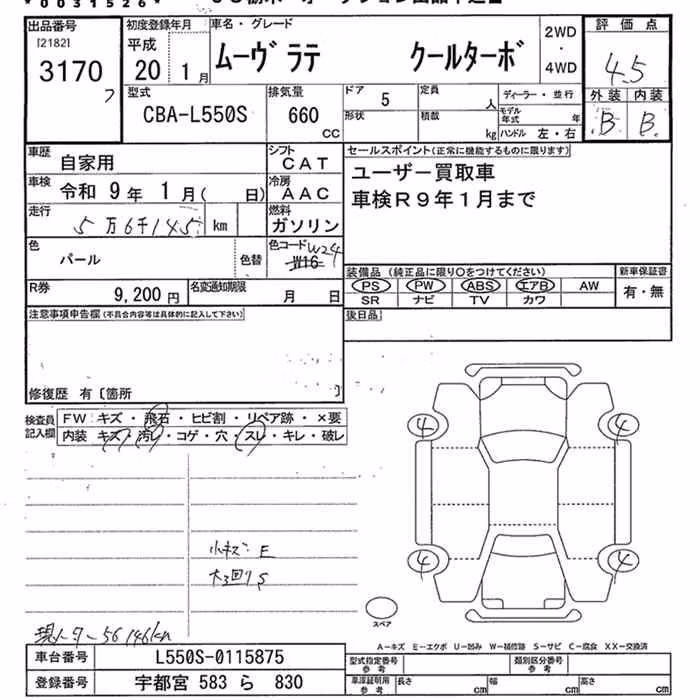 *0031526*
出品番号 [2182] 3170 フ
初度登録年月 平成 20年 1月
車名・グレード ムーヴ ラテ クールターボ
2WD ・ 4WD
評価点 4.5
外装 B 内装 B
型式 CBA-L550S
排気量 660 CC
ドア 5
形状
定員 人
積載 kg
ディーラー・並行
モデル年式 年
ハンドル 左・右
車歴 自家用
シフト CAT
車検 令和 9年 1月( 日)
冷房 AAC
走行 5万6千145 km
燃料 ガソリン
色 パール 色替
色コード W16 W24
R券 9,200円
名変通知期限 月 日
セールスポイント(正常に機能するものに限ります)
ユーザー買取車
車検R9年1月まで
装備品 (純正品に限り○をつけてください)
PS PW ABS エアB AW
SR ナビ TV カワ
新車保証書
有・無
後日品
注意事項申告欄(不具合内容等は具体的に記入して下さい)
修復歴 有〔箇所 〕
検査員記入欄
FW キズ・飛石・ヒビ割・リペア跡・×要
内装 キズ・汚レ・コゲ・穴・スレ・キレ・破レ
小キズ E
S
4 4
4 4
スペア
現メーター56146km
A-キズ E-エクボ U-凹み W-補修跡 S-サビ C-腐食 XX-交換済
車台番号 L550S-0115875
登録番号 宇都宮 583 ら 830
型式指定番号 参考
類別区分番号 参考
車庫証明用 参考
長さ cm 幅 cm 高さ cm